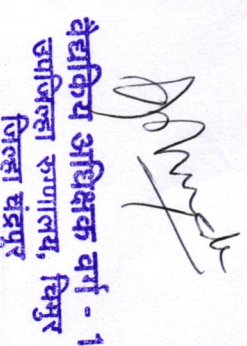 वैद्यकिय अधिक्षक वर्ग - 1
उपजिल्हा रुग्णालय, चिमुर
जिल्हा चंद्रपूर